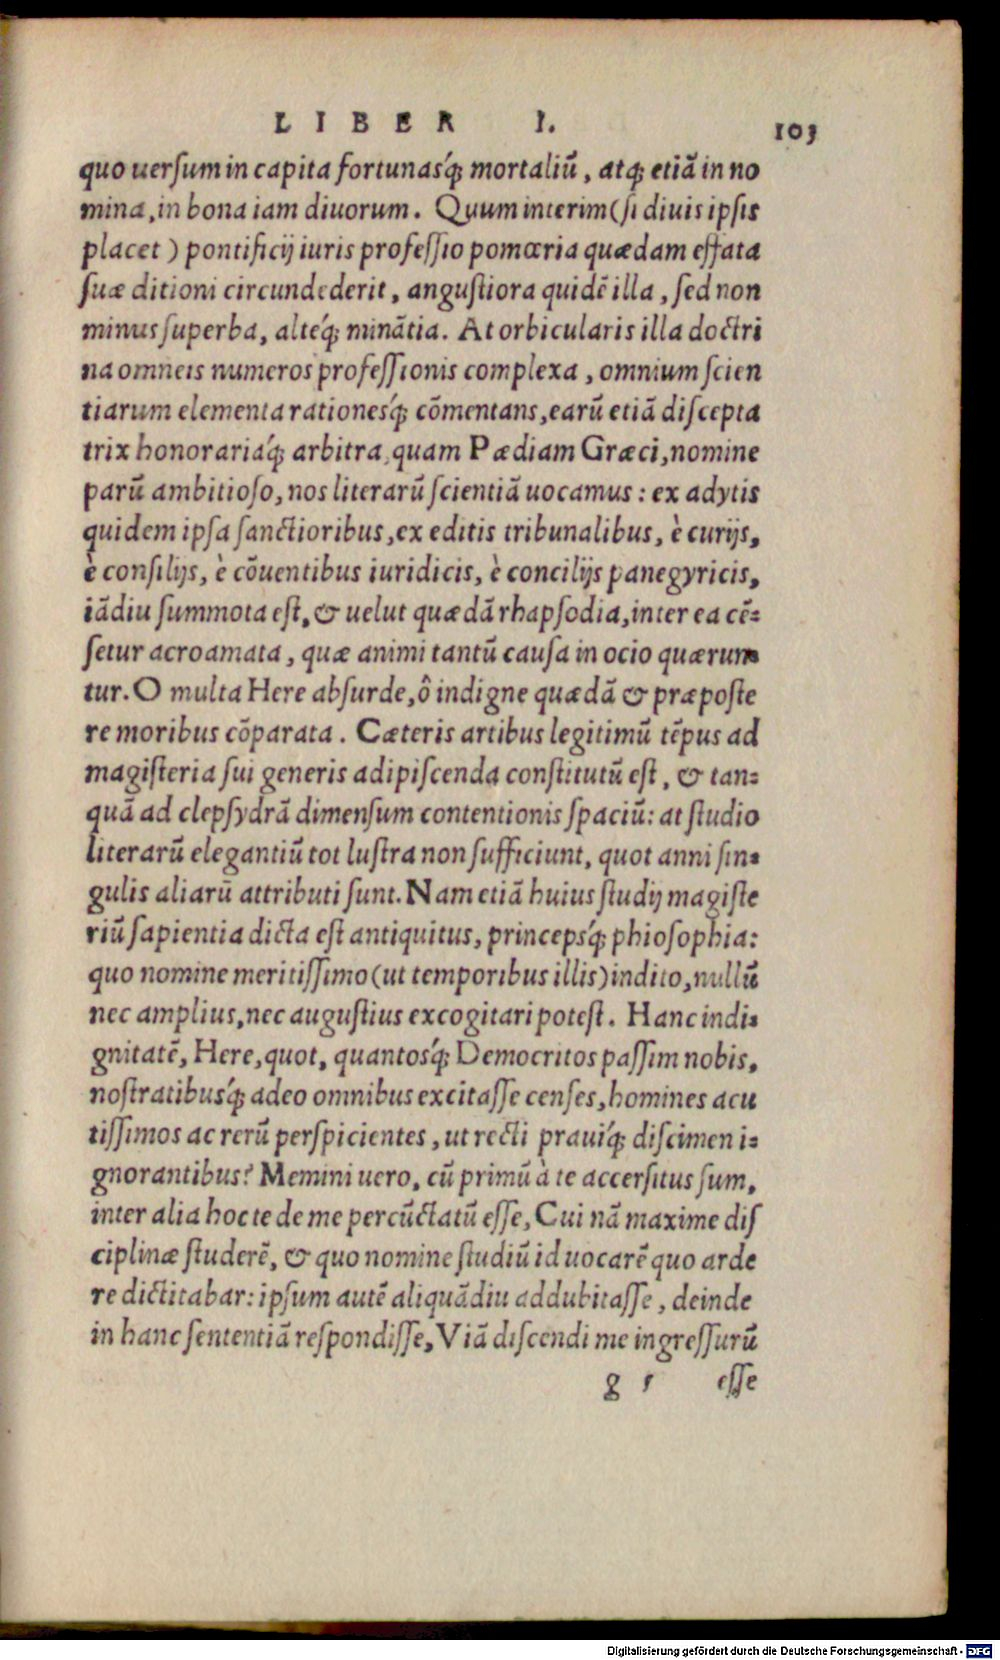 LIBER I. 103
quo uersum in capita fortunasq́; mortaliũ, atq; etiã in no
mina, in bona iam diuorum. Quum interim (si diuis ipsis
placet) pontificij iuris professio pomœria quædam effata
suæ ditioni circundederit, angustiora quidẽ illa, sed non
minus superba, alteq́; minãtia. At orbicularis illa doctri
na omneis numeros professionis complexa, omnium scien
tiarum elementa rationesq́; cõmentans, earũ etiã discepta
trix honorariaq́; arbitra, quam Pædiam Græci, nomine
parũ ambitioso, nos literarũ scientiã uocamus: ex adytis
quidem ipsa sanctioribus, ex editis tribunalibus, è curijs,
è consilijs, è cõuentibus iuridicis, è concilijs panegyricis,
iãdiu summota est, & uelut quædã rhapsodia, inter ea cẽ-
setur acroamata, quæ animi tantũ causa in ocio quærun-
tur. O multa Here absurde, ô indigne quædã & præposte
re moribus cõparata. Cæteris artibus legitimũ tẽpus ad
magisteria sui generis adipiscenda constitutũ est, & tan-
quã ad clepsydrã dimensum contentionis spaciũ: at studio
literarũ elegantiũ tot lustra non sufficiunt, quot anni sin-
gulis aliarũ attributi sunt. Nam etiã huius studij magiste
riũ sapientia dicta est antiquitus, princepsq́; phiosophia:
quo nomine meritissimo (ut temporibus illis) indito, nullũ
nec amplius, nec augustius excogitari potest. Hanc indi-
gnitatẽ, Here, quot, quantosq́; Democritos passim nobis,
nostratibusq́; adeo omnibus excitasse censes, homines acu
tissimos ac rerũ perspicientes, ut recti prauiq́; discimen i-
gnorantibus? Memini uero, cũ primũ à te accersitus sum,
inter alia hoc te de me percũctatũ esse, Cui nã maxime dis
ciplinæ studerẽ, & quo nomine studiũ id uocarẽ quo arde
re dictitabar: ipsum autẽ aliquãdiu addubitasse, deinde
in hanc sententiã respondisse, Viã discendi me ingressurũ
g 5 esse
Digitalisierung gefördert durch die Deutsche Forschungsgemeinschaft - DFG